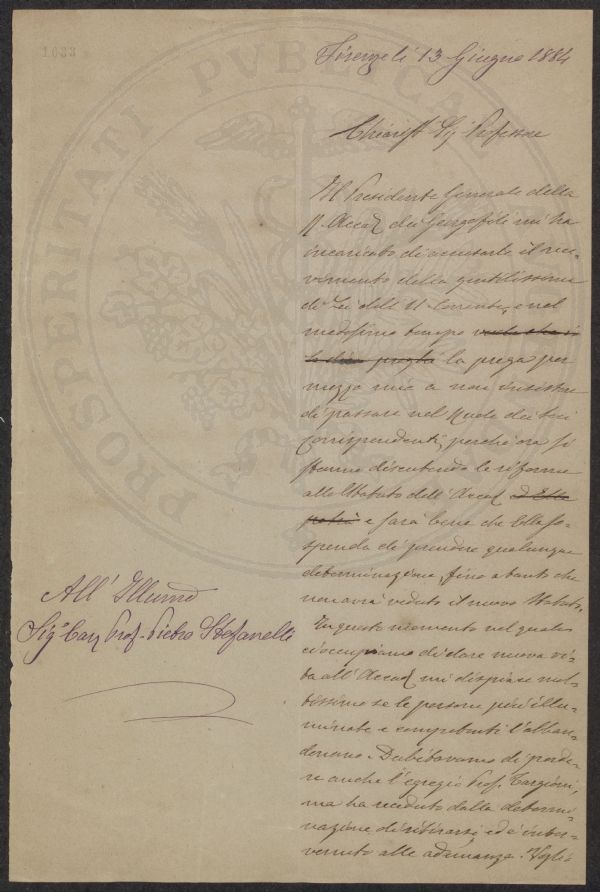 1633
Firenze li 13 Giugno 1884
Chiariss. Sig. Professore
Il Presidente Generale della
R. Accad. dei Georgofili mi ha
incaricato di accusarle il rice-
vimento della gentilissima
di Lei dell' 11 Corrente, e nel
medesimo tempo
la prega per
mezzo mio a non insistere
di passare nel Ruolo dei Soci
Corrispondenti, perchè ora si
stanno discutendo le riforme
allo Statuto dell' Accad. ed Ella
potrà e sarà bene che Ella so-
spenda di prendere qualunque
determinazione, fino a tanto che
non avrà veduto il nuovo Statuto.
In questo momento nel quale
ci occupiamo di dare nuova vi-
ta all' Accad. mi dispiace mol-
tissimo se le persone più illu-
minate e competenti l'abban-
donano. Dubitavamo di perde-
re anche l'egregio Prof. Targioni,
ma ha receduto dalla determi-
nazione di ritirarsi ed è inter-
venuto alle adunanze. Voglio
All' Illumo
Sigr Cav. Prof. Pietro Stefanelli
PROSPERITATI PUBLICAE